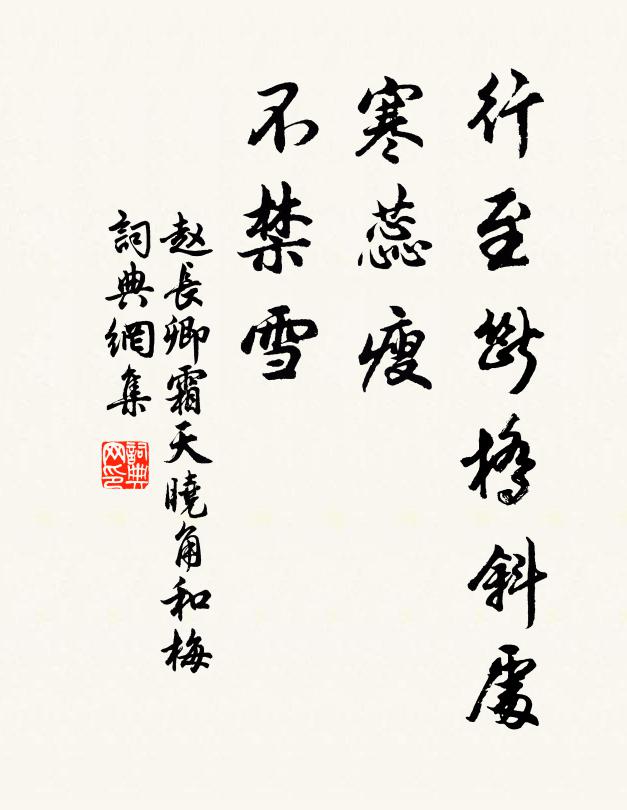 行至斷橋斜處
寒蕊瘦
不禁雪
赵長卿霜天曉角和梅
詞典網集
詞典網印